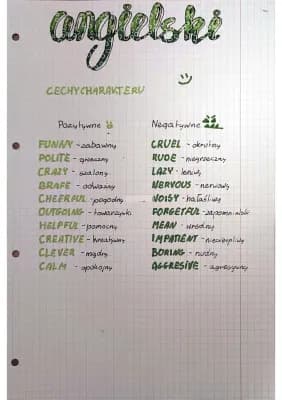 angielski
CECHY CHARAKTERU
Pozytywne
FUNNY - zabawny
POLITE - grzeczny
CRAZY - szalony
BRAFE - odważny
CHEERFUL - pogodny
OUTGOING - towarzyski
HELPFUL - pomocny
CREATIVE - kreatywny
CLEVER - mądry
CALM - spokojny
Negatywne
CRUEL - okrutny
RUDE - niegrzeczny
LAZY - leniwy
NERVOUS - nerwowy
NOISY - hałaśliwy
FORGETFUL - zapominalski
MEAN - wredny
IMPATIENT - niecierpliwy
BORING - nudny
AGGRESIVE - agresywny